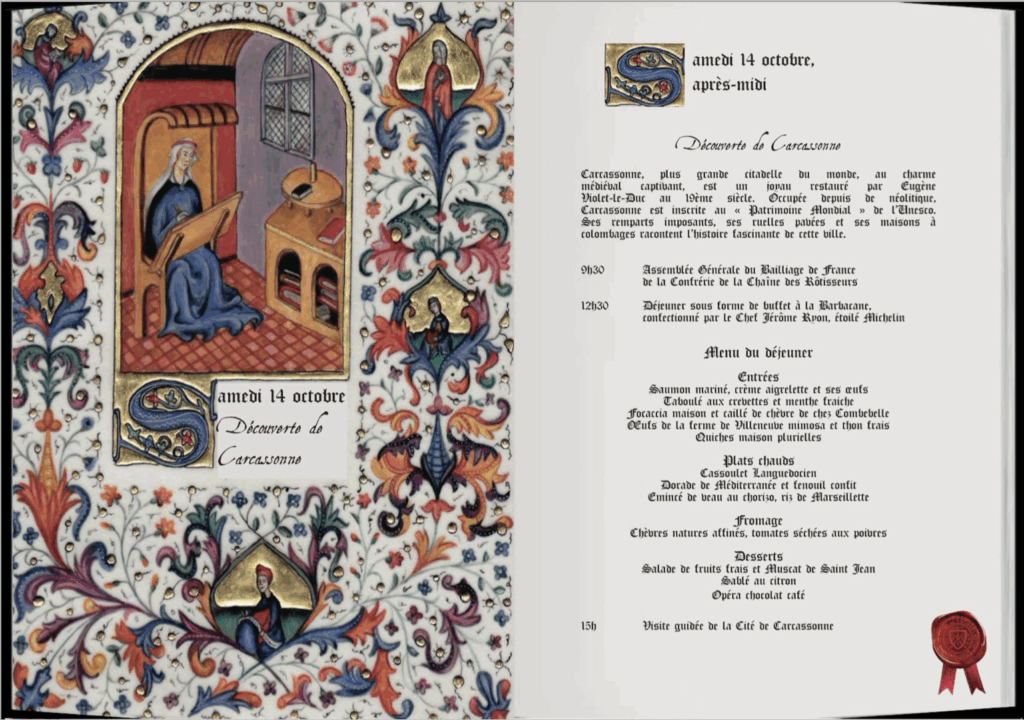 Samedi 14 octobre
Découverte de
Carcassonne
Samedi 14 octobre,
après-midi
Découverte de Carcassonne
Carcassonne, plus grande citadelle du monde, au charme
médiéval captivant, est un joyau restauré par Eugène
Violet-le-Duc au 19ème siècle. Occupée depuis de néolitique,
Carcassonne est inscrite au « Patrimoine Mondial » de l'Unesco.
Ses remparts imposants, ses ruelles pavées et ses maisons à
colombages racontent l'histoire fascinante de cette ville.
9h30 Assemblée Générale du Bailliage de France
de la Confrérie de la Chaîne des Rôtisseurs
12h30 Déjeuner sous forme de buffet à la Barbacane,
confectionné par le Chef Jérôme Ryon, étoilé Michelin
Menu du déjeuner
Entrées
Saumon mariné, crème aigrelette et ses œufs
Taboulé aux crevettes et menthe fraiche
Focaccia maison et caillé de chèvre de chez Combebelle
Œufs de la ferme de Villeneuve mimosa et thon frais
Quiches maison plurielles
Plats chauds
Cassoulet Languedocien
Dorade de Méditerranée et fenouil confit
Emincé de veau au chorizo, riz de Marseillette
Fromage
Chèvres natures affinés, tomates séchées aux poivres
Desserts
Salade de fruits frais et Muscat de Saint Jean
Sablé au citron
Opéra chocolat café
15h Visite guidée de la Cité de Carcassonne